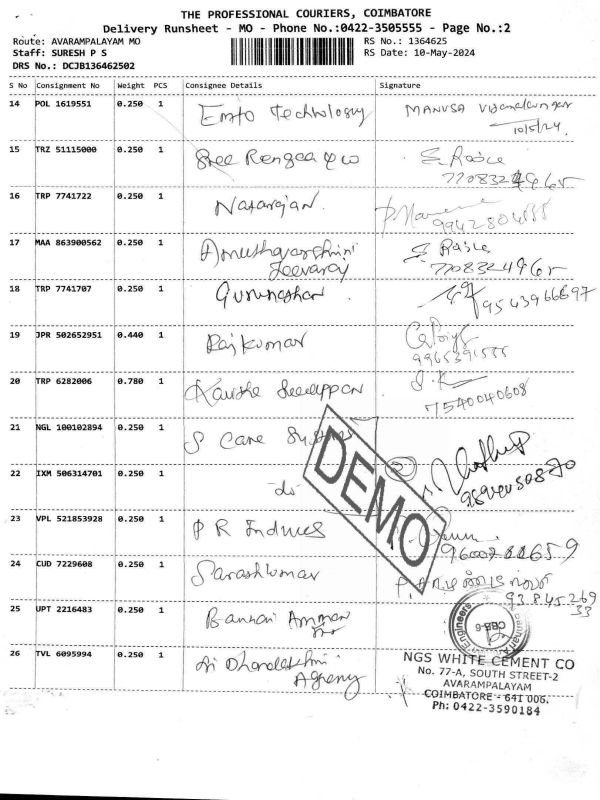 THE PROFESSIONAL COURIERS, COIMBATORE
Delivery Runsheet - MO - Phone No.:0422-3505555 - Page No.:2
Route: AVARAMPALAYAM MO RS No.: 1364625
Staff: SURESH P S RS Date: 10-May-2024
DRS No.: DCJB136462502
S No Consignment No Weight PCS Consignee Details Signature
14 POL 1619551 0.250 1 Emfo Technology MANUSA
10/5/24.
15 TRZ 51115000 0.250 1 Sree Rengaa
16 TRP 7741722 0.250 1 Natarajan
17 MAA 863900562 0.250 1
7708324965
18 TRP 7741707 0.250 1 9543966697
19 JPR 502652951 0.440 1 Rajkumar
20 TRP 6282006 0.780 1
7540040608
21 NGL 100102894 0.250 1 S Care Systems
DEMO
22 IXM 506314701 0.250 1 do
23 VPL 521853928 0.250 1 P R
24 CUD 7229608 0.250 1 Sarashkumar
93 845 269
33
25 UPT 2216483 0.250 1 Bannari Amman
CBE-6
26 TVL 6095994 0.250 1 Sri Dhanalakshmi
Agency
NGS WHITE CEMENT CO
No. 77-A, SOUTH STREET-2
AVARAMPALAYAM
COIMBATORE - 641 006.
Ph: 0422-3590184